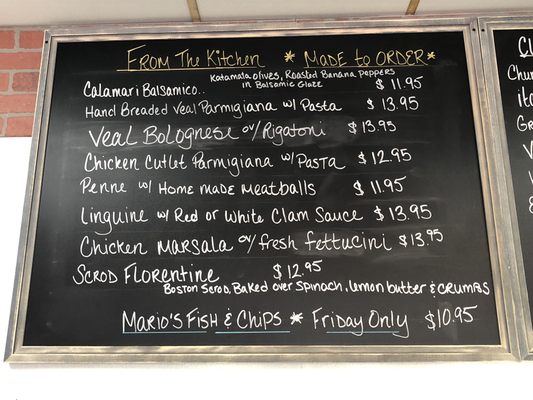 From The Kitchen * Made to Order *
Katamata olives, Roasted Banana Peppers
in Balsamic Glaze
Calamari Balsamico.. $11.95
Hand Breaded Veal Parmigiana w/ Pasta $13.95
Veal Bolognese ov/ Rigatoni $13.95
Chicken Cutlet Parmigiana w/ Pasta $12.95
Penne w/ Home made Meatballs $11.95
Linguine w/ Red or White Clam Sauce $13.95
Chicken Marsala ov/ fresh fettucini $13.95
Scrod Florentine $12.95
Boston Scrod, Baked over Spinach, lemon butter & crumbs
Mario's Fish & Chips * Friday Only $10.95